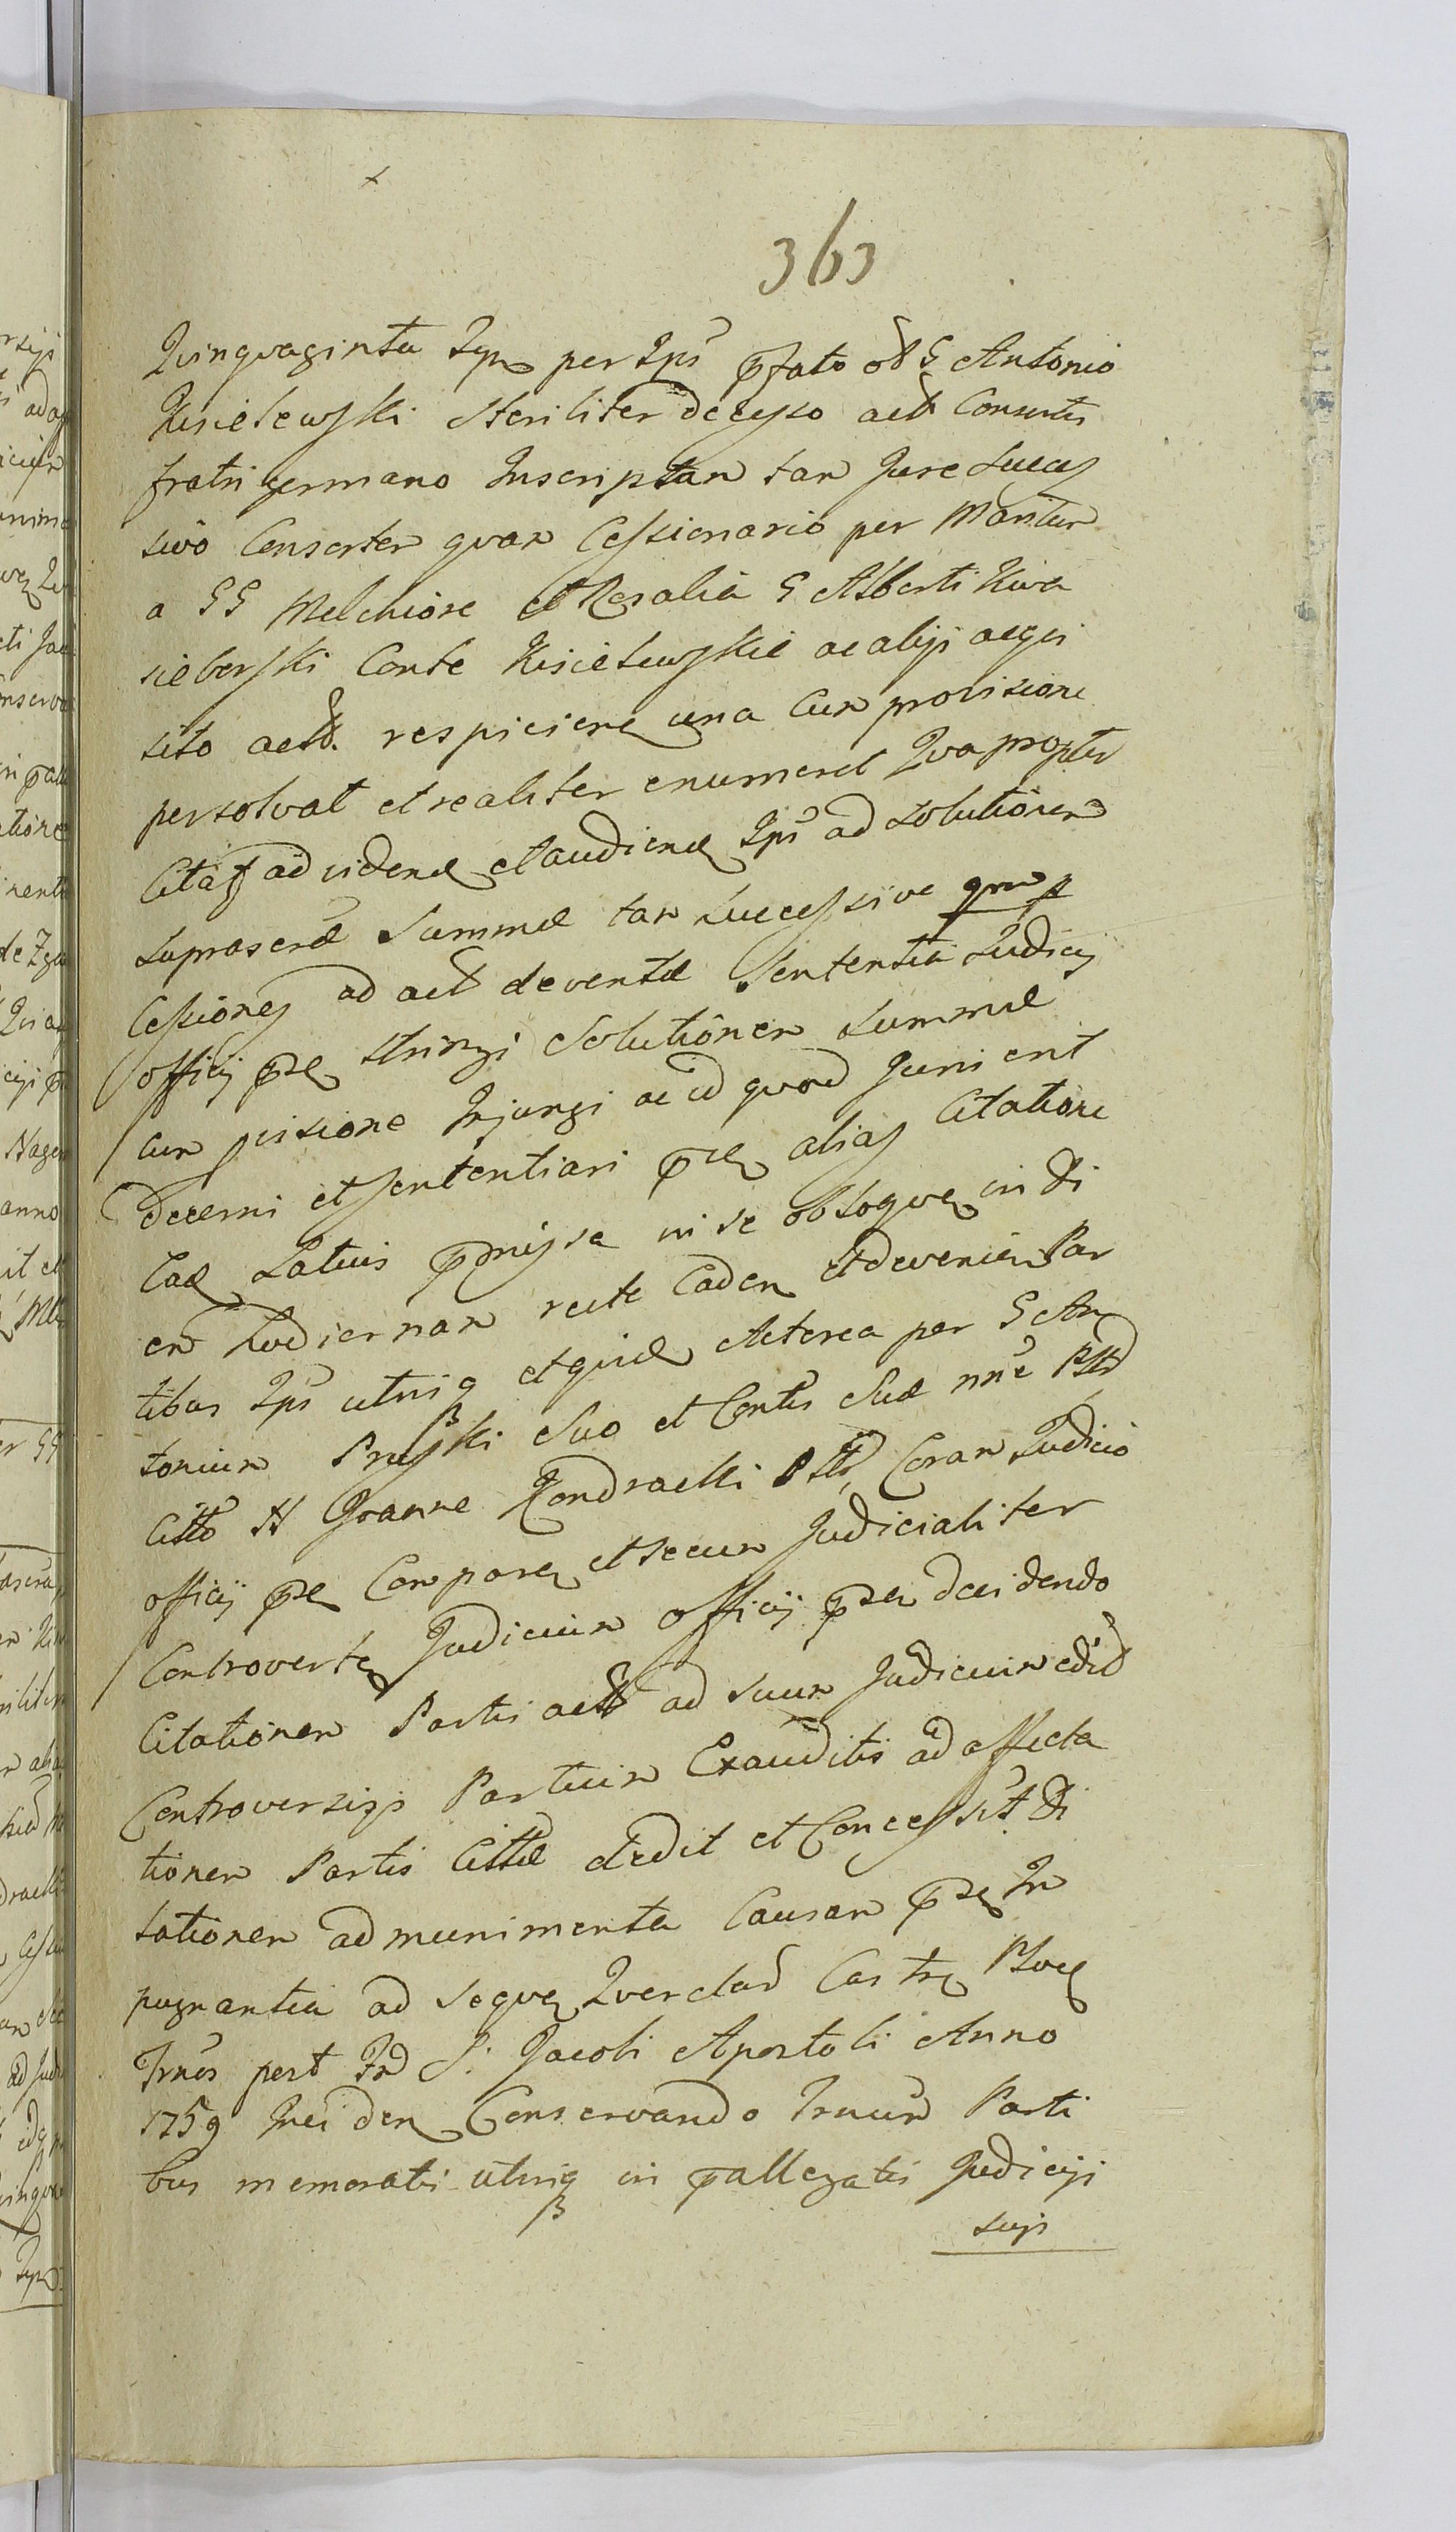 363
Qvinqvaginta per Ips pfato olt G Antonio
Kisielewski steriliter decesso act Consortis
fratri germano Inscriptam tam Jure Succes
sivo Consorter qvam Cessionario per Maritum
a GG Melchiore et Rosalia G Alberti Kwa
sieborski Conte Kisielewskie ac alijs acqvi
sito act. respiciene una Cum provisione
persolvat et realiter enumeret Qvapropter
Citat ad vidend et audiend Ips ad solutionem
suprascrae Summae tam Successive qm
Cessiones ad act deventae Sententia Judicij
officij pse stringi Solutionem Summae
Cum pvisione Injungi ac id qvod Juris erit
decerni et sententiari pse alias Citatione
Cae Latius pmissa in se obloqve in di
em hodiernam recte Caden et devenien Par
tibus Ips utrisq et qvid Acterea per G An
tonium Pruski Suo et Contis Suae nne
Citto N Joanne Kondracki Coram Judicio
officij pse Compare et secum Judicialiter
Controverte Judicium officij pse decidendo
Citationem Partis act ad suum Judicium edid
Controversijs Partium Exauditis ad affecta
tionem Partis Cittae dedit et Concessit Di
lationem ad munimenta Causam pse Im
pugnantia ad seqve Qverelas Castr
Trnos post Fd S. Jacobi Apostoli Anno
1759 Incidem Conservando Trnum Parti
bus memoratis utrisq in pallegatis Judicijs
suis